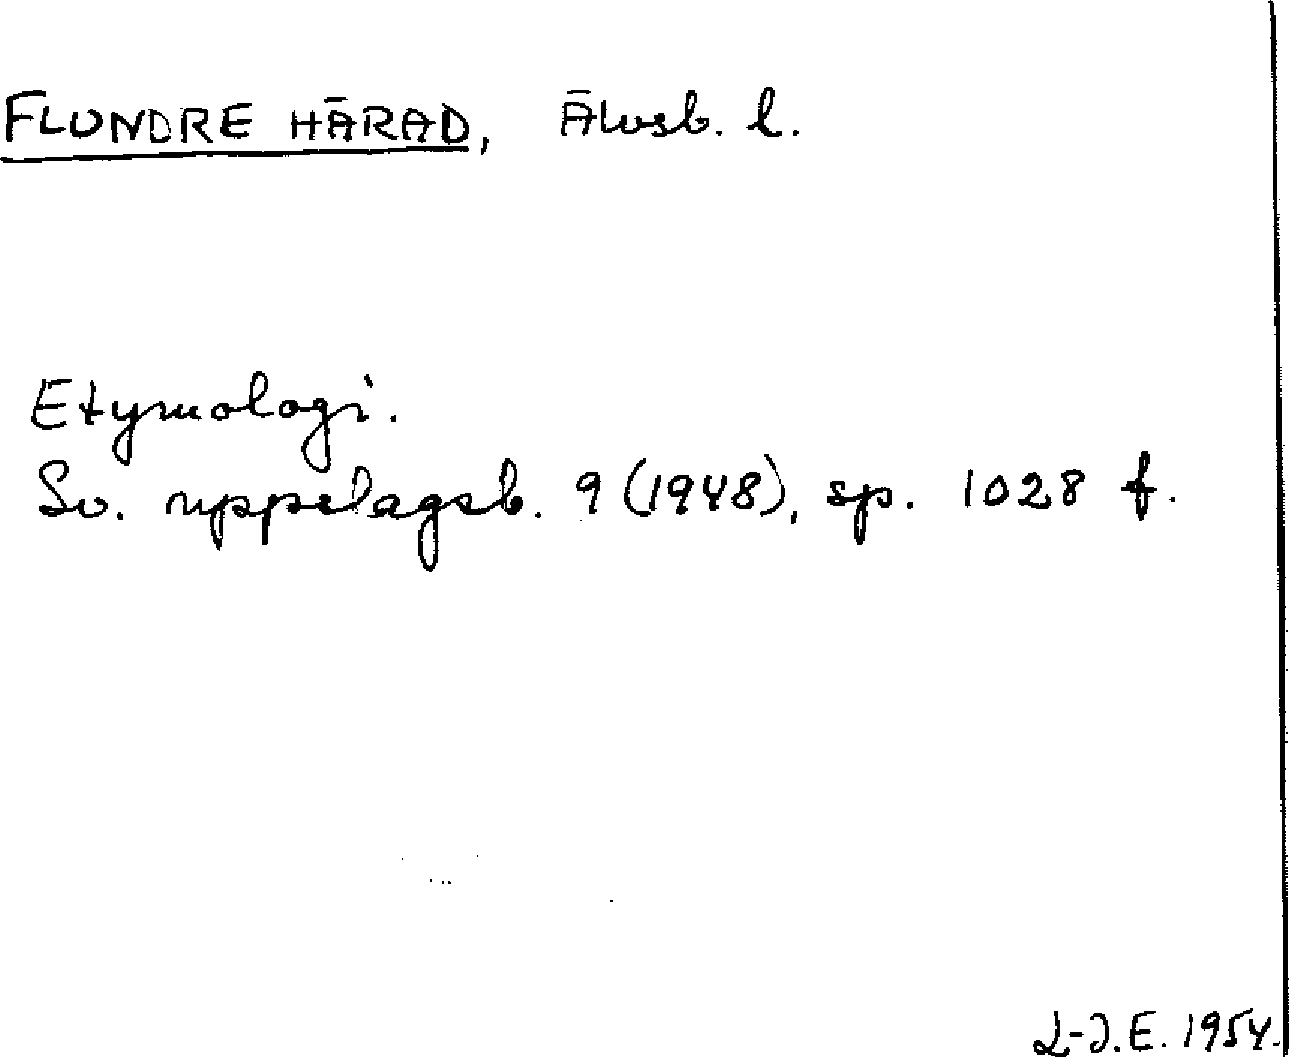 FLUNDRE HÄRAD, Älvsb. l.
Etymologi.
Sv. uppslagsb. 9 (1948), sp. 1028 f.
L-J.E. 1954.